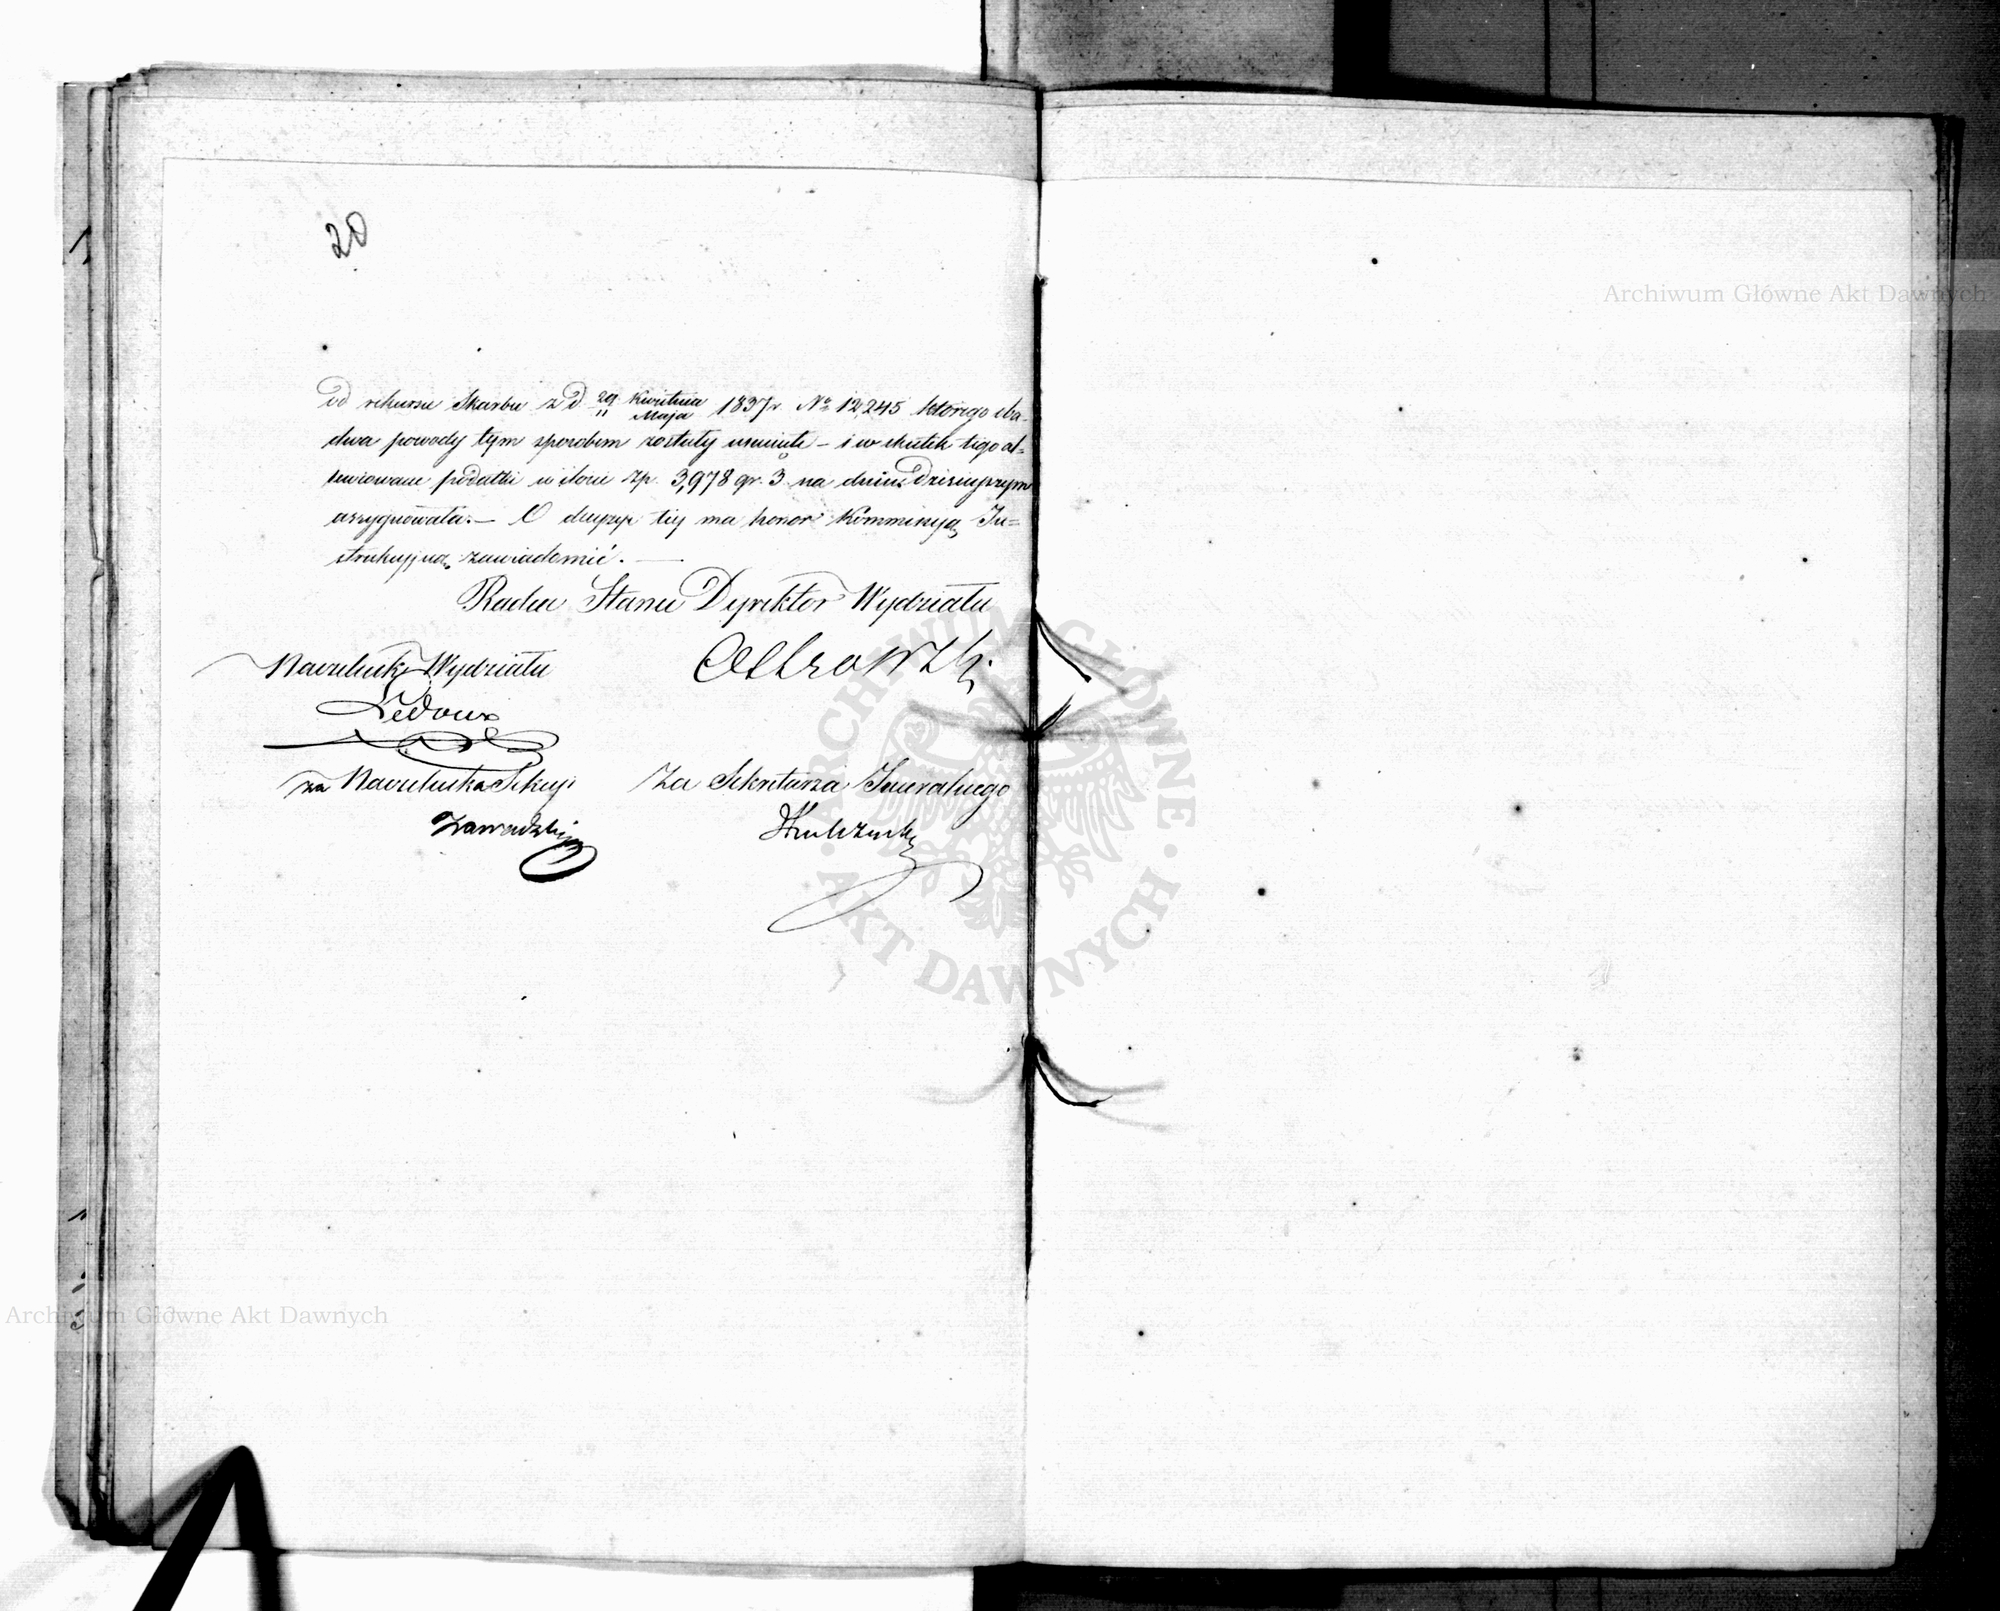 20
od rekursu Skarbu z D 29 Kwietnia / 11 Maja 1837 r. No 12,245 którego oba-
dwa powody tym sposobem zostały usunięte – i w skutek tego al-
terowane podatki w ilości zp. 3,978 gr. 3 na dniu Dzisiejszym
assygnowała. – O decyzyi tey ma honor Kommissyą In-
strukcyjną zawiadomić. —
Radca Stanu Dyrektor Wydziału
Naczelnik Wydziału
Ledoux
za Naczelnika Sekcyi
Zawadzki
Za Sekretarza Jeneralnego
ARCHIWUM GŁÓWNE · AKT DAWNYCH ·
Archiwum Główne Akt Dawnych
Archiwum Główne Akt Dawnych